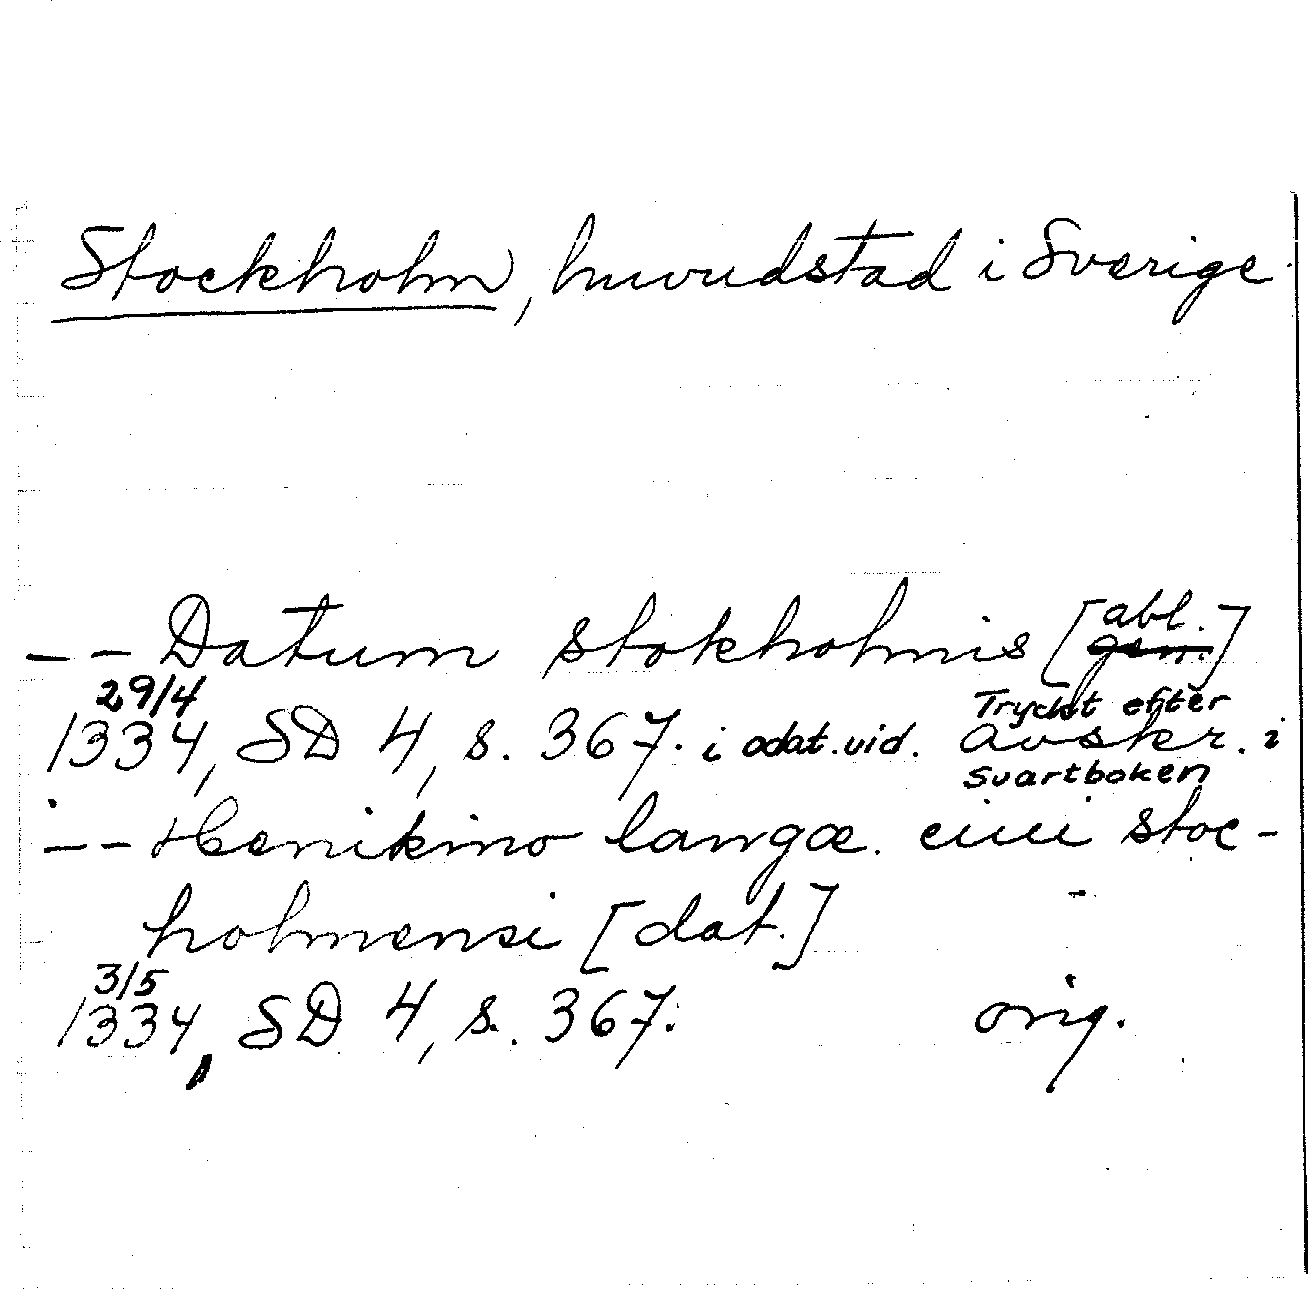 Stockholm, huvudstad i Sverige.
-- Datum stokholmis [abl. gen.]
29/4
1334, SD 4, s. 367. i odat. vid. Tryckt efter avskr. i Svartboken
-- Henikino langæ. ciui stoc-
holmensi [dat.]
3/5
1334, SD 4, s. 367. orig.